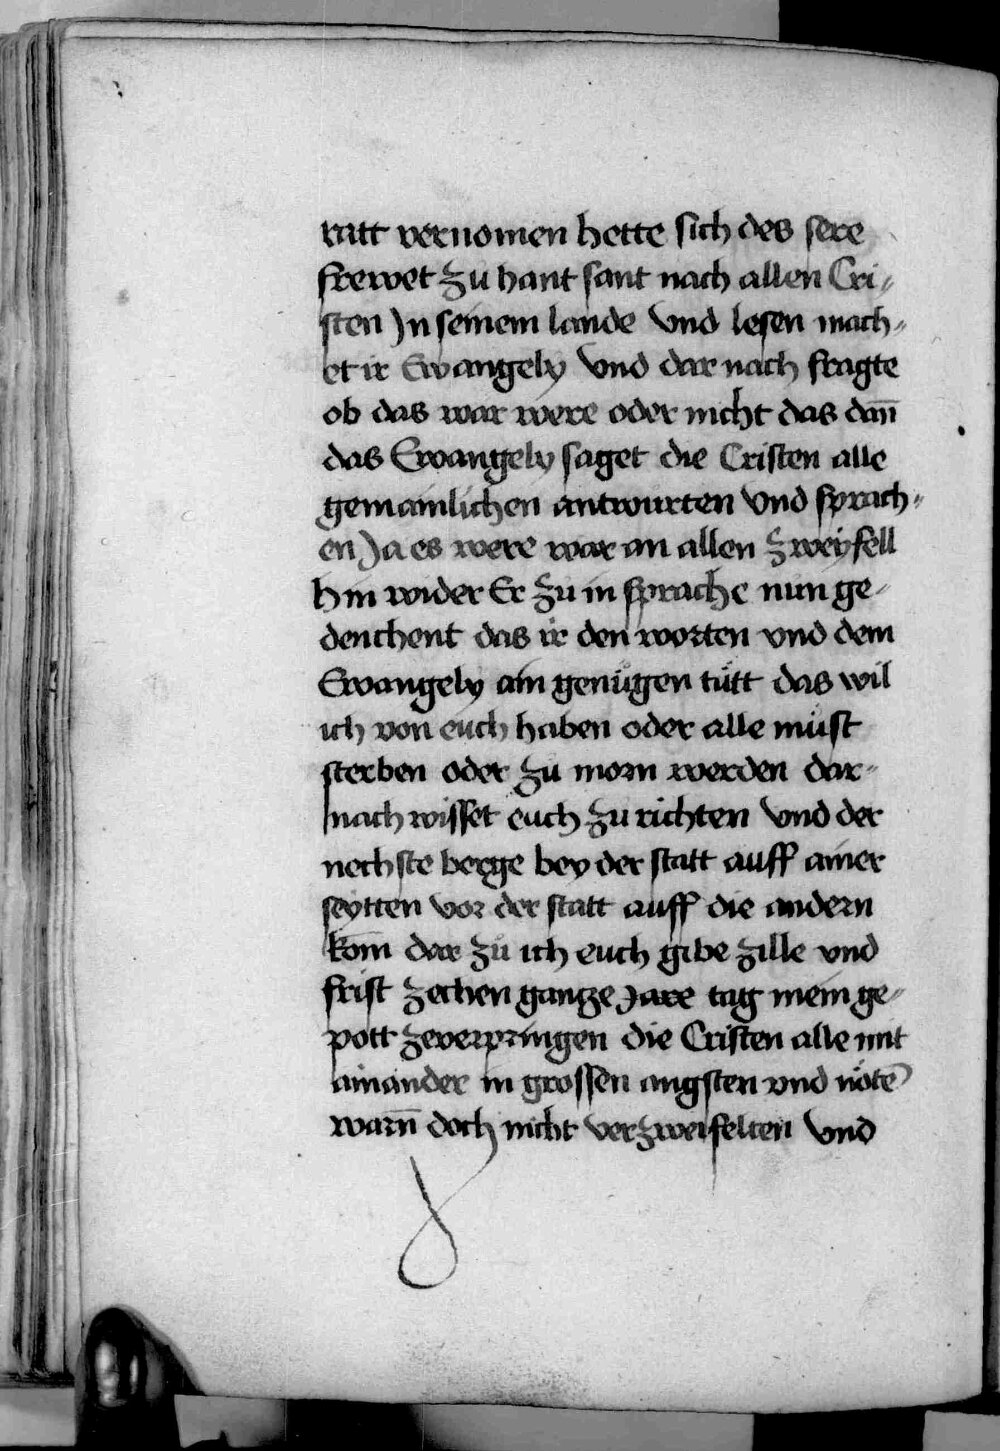 ratt vernomen hette sich des sere
frewet zu hant sant nach allen Cri-
sten Jn seinem lande Vnd lesen mach-
et ir Ewangely Vnd dar nach fragte
ob das war were oder nicht das dan̄
das Ewangely saget die Cristen alle
gemainlichen antwurten Vnd sprach-
en Ja es were war an allen zweÿfell
hin wider Er zu in sprache nun ge-
denchent das ir den worten vnd dem
Ewangely ain genůgen tůtt das wil
ich von euch haben oder alle můst
sterben oder zu morn werden dar-
nach wisset euch zu richten Vnd der
nechste berge bey der statt auff ainer
seÿtten vor der statt auff die andern
kom̄ dar zů ich euch gibe zille vnd
frist zechen gantze Jare tag mein ge-
pott zeverpringen die Cristen alle mit
ainander in grossen angsten vnd nöte͂
warn̄ doch nicht verzweifelten Vnd